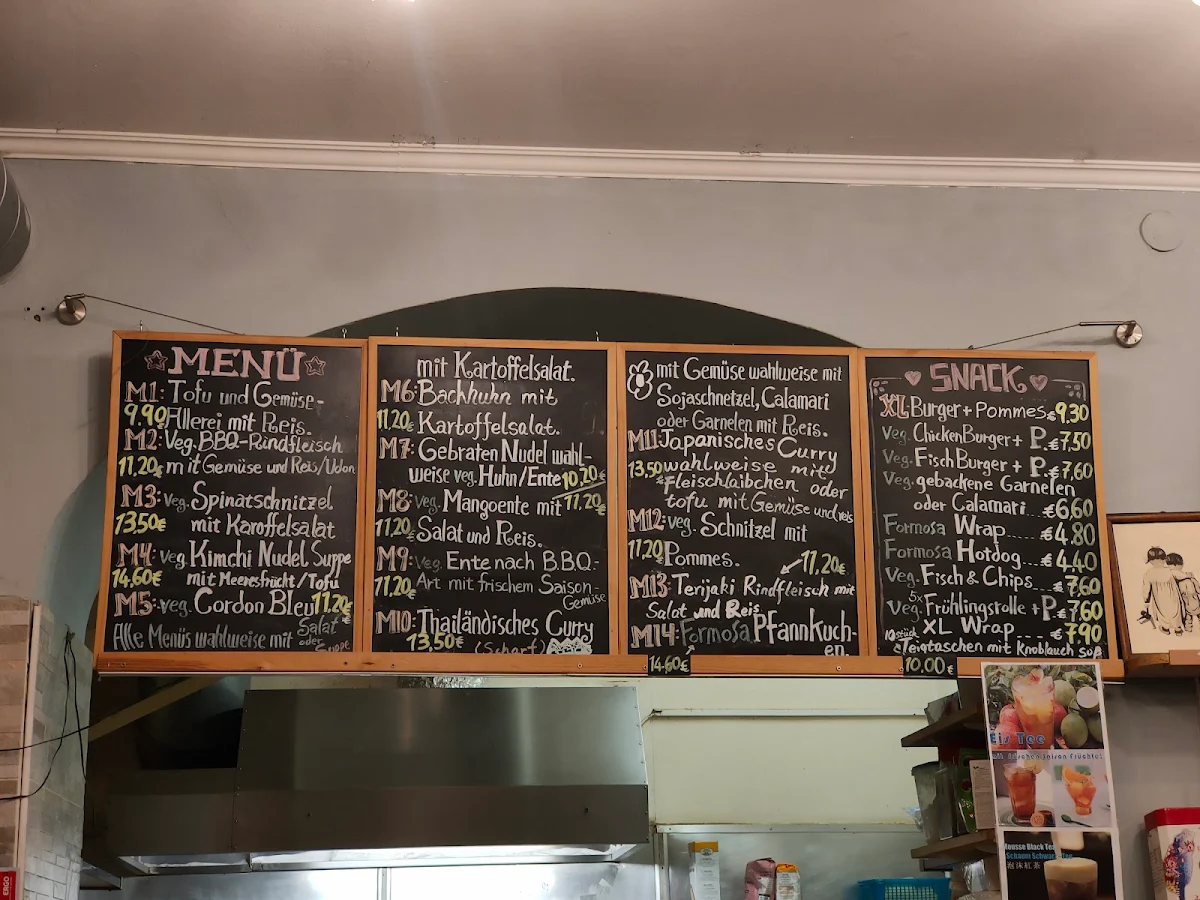 MENÜ
M1: Tofu und Gemüse-
9.90 Allerei mit Reis.
M2: Veg. BBQ-Rindfleisch
11,20€ mit Gemüse und Reis/Udon
M3: veg. Spinatschnitzel
13.50€ mit Karoffelsalat
M4: veg. Kimchi Nudel Suppe
14.60€ mit Meeresfrücht/Tofu
M5: veg. Cordon Bleu 11.20€
Alle Menüs wahlweise mit Salat oder Suppe
mit Kartoffelsalat.
M6: Bachhuhn mit
11,20€ Kartoffelsalat.
M7: Gebraten Nudel wahl-
weise veg. Huhn/Ente 10,20€
11,20€
M8: veg. Mangoente mit
11,20€ Salat und Reis.
M9: veg. Ente nach B.B.Q.-
11,20€ Art mit frischem Saison-
Gemüse
M10: Thailändisches Curry
13,50€ (Scharf)
mit Gemüse wahlweise mit
Sojaschnetzel, Calamari
oder Garnelen mit Reis.
M11: Japanisches Curry
13,50 wahlweise mit
Fleischlaibchen oder
tofu mit Gemüse und reis
M12: veg. Schnitzel mit
11,20 Pommes.
11,20€
M13: Terijaki Rindfleisch mit
Salat und Reis
M14: Formosa Pfannkuch-
en.
14.60€
SNACK
XL Burger + Pommes €9,30
Veg. Chicken Burger + P. €7,50
Veg. Fisch Burger + P. €7,60
Veg. gebackene Garnelen
oder Calamari... €6,60
Formosa Wrap...... €4.80
Formosa Hotdog.... €4,40
Veg. Fisch & Chips €7,60
Veg. 5x Frühlingsrolle + P. €7,60
XL Wrap.... €7,90
10stück Teigtaschen mit Knoblauch Soß
10.00€
Eis Tee
Mousse Black Tea
Schaum Schwarz Tee
泡沫紅茶
ERGO